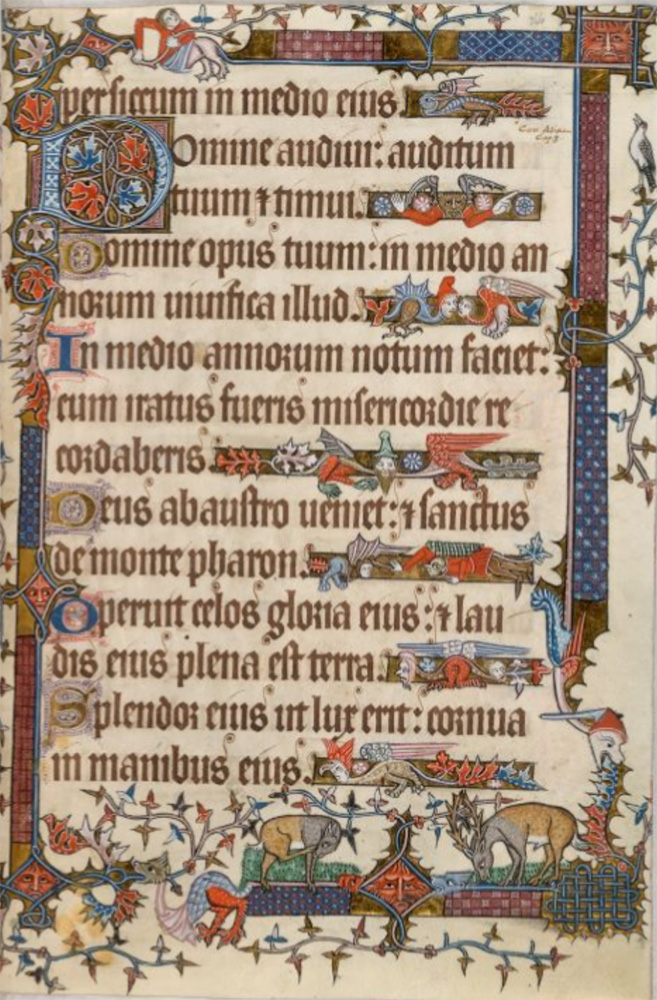 per siccum in medio eius.
Domine audiui: auditum
tuum ⁊ timui.
Domine opus tuum: in medio an
norum uiuifica illud.
In medio annorum notum facies:
cum iratus fueris misericordie re
cordaberis.
Deus ab austro ueniet: ⁊ sanctus
de monte pharon.
Operuit celos gloria eius: ⁊ lau
dis eius plena est terra.
Splendor eius ut lux erit: cornua
in manibus eius.